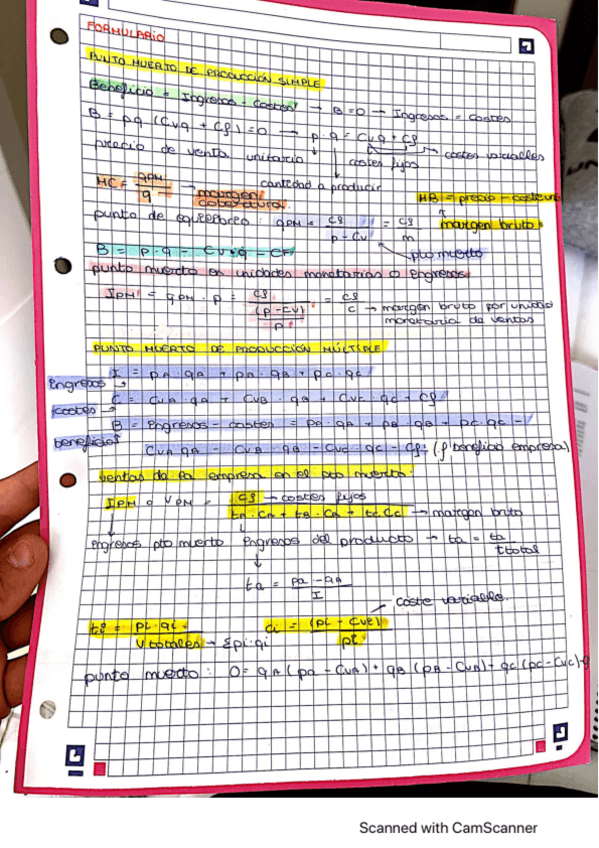 FORMULARIO
PUNTO MUERTO DE PRODUCCIÓN SIMPLE
Beneficio = Ingresos - costes → B=0 → Ingresos = costes
B = pq (Cvq + Cf) = 0 → p·q = Cvq + Cf
precio de venta unitario costes fijos costes variables
cantidad a producir
MC = qPM / q → margen cobertura.
MB = precio - costeun
margen bruto
punto de equilibrio: qPM = Cf / p - Cv = Cf / m
pto muerto
B = p·q - Cv·q - CF
punto muerto en unidades monetarias o ingresos
IPM = qPM · p = Cf / (p-Cv) / p = Cf / c → margen bruto por unidad monetaria de ventas
PUNTO MUERTO DE PRODUCCIÓN MÚLTIPLE
Ingresos → I = pA·qA + pB·qB + pC·qC
costes → C = CvA·qA + CvB·qB + CvC·qC + Cf
beneficios B = Ingresos - costes = PA·qA + pB·qB + pC·qC -
CvA qA - CvB qB - CvC qC - Cf (beneficio empresa)
ventas de la empresa en el pto muerto:
IPM o VPM = Cf → costes fijos
tA·CA + tB·CB + tC·CC → margen bruto
Ingresos pto muerto Ingresos del producto → ta = ta / ttotal
ta = pa - qa / I
coste variable
ti = pi·qi / Vtotales → Σpi·qi ci = (pi - Cvi) / pi
punto muerto: 0 = qA (pa - CvA) + qB (pB - CvB) + qC (pC - CvC) - 
Scanned with CamScanner